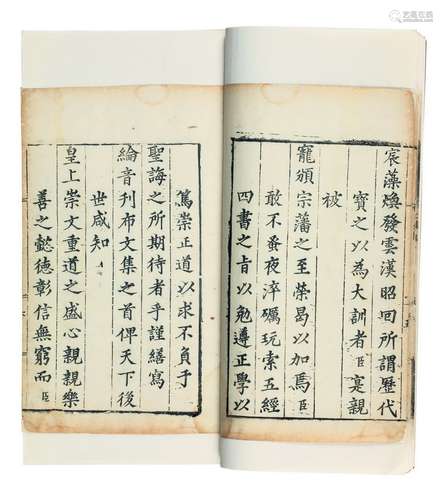 宸藻煥發雲漢昭回所謂歷代
寶之以為大訓者臣寔親
被
寵頒宗藩之至榮曷以加焉臣
敢不蚤夜淬礪玩索五經
四書之旨以勉遵正學以
篤崇正道以求不負乎
聖誨之所期待者乎謹繕寫
綸音刊布文集之首俾天下後
世咸知
皇上崇文重道之盛心親親樂
善之懿德彰信無窮而臣